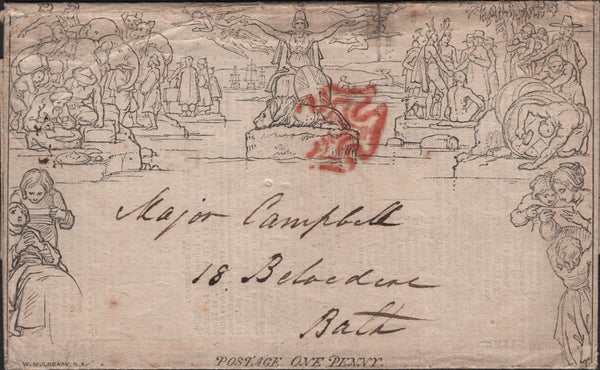 Major Campbell
18. Belvedere
Bath
W. MULREADY, R.A.
POSTAGE ONE PENNY.